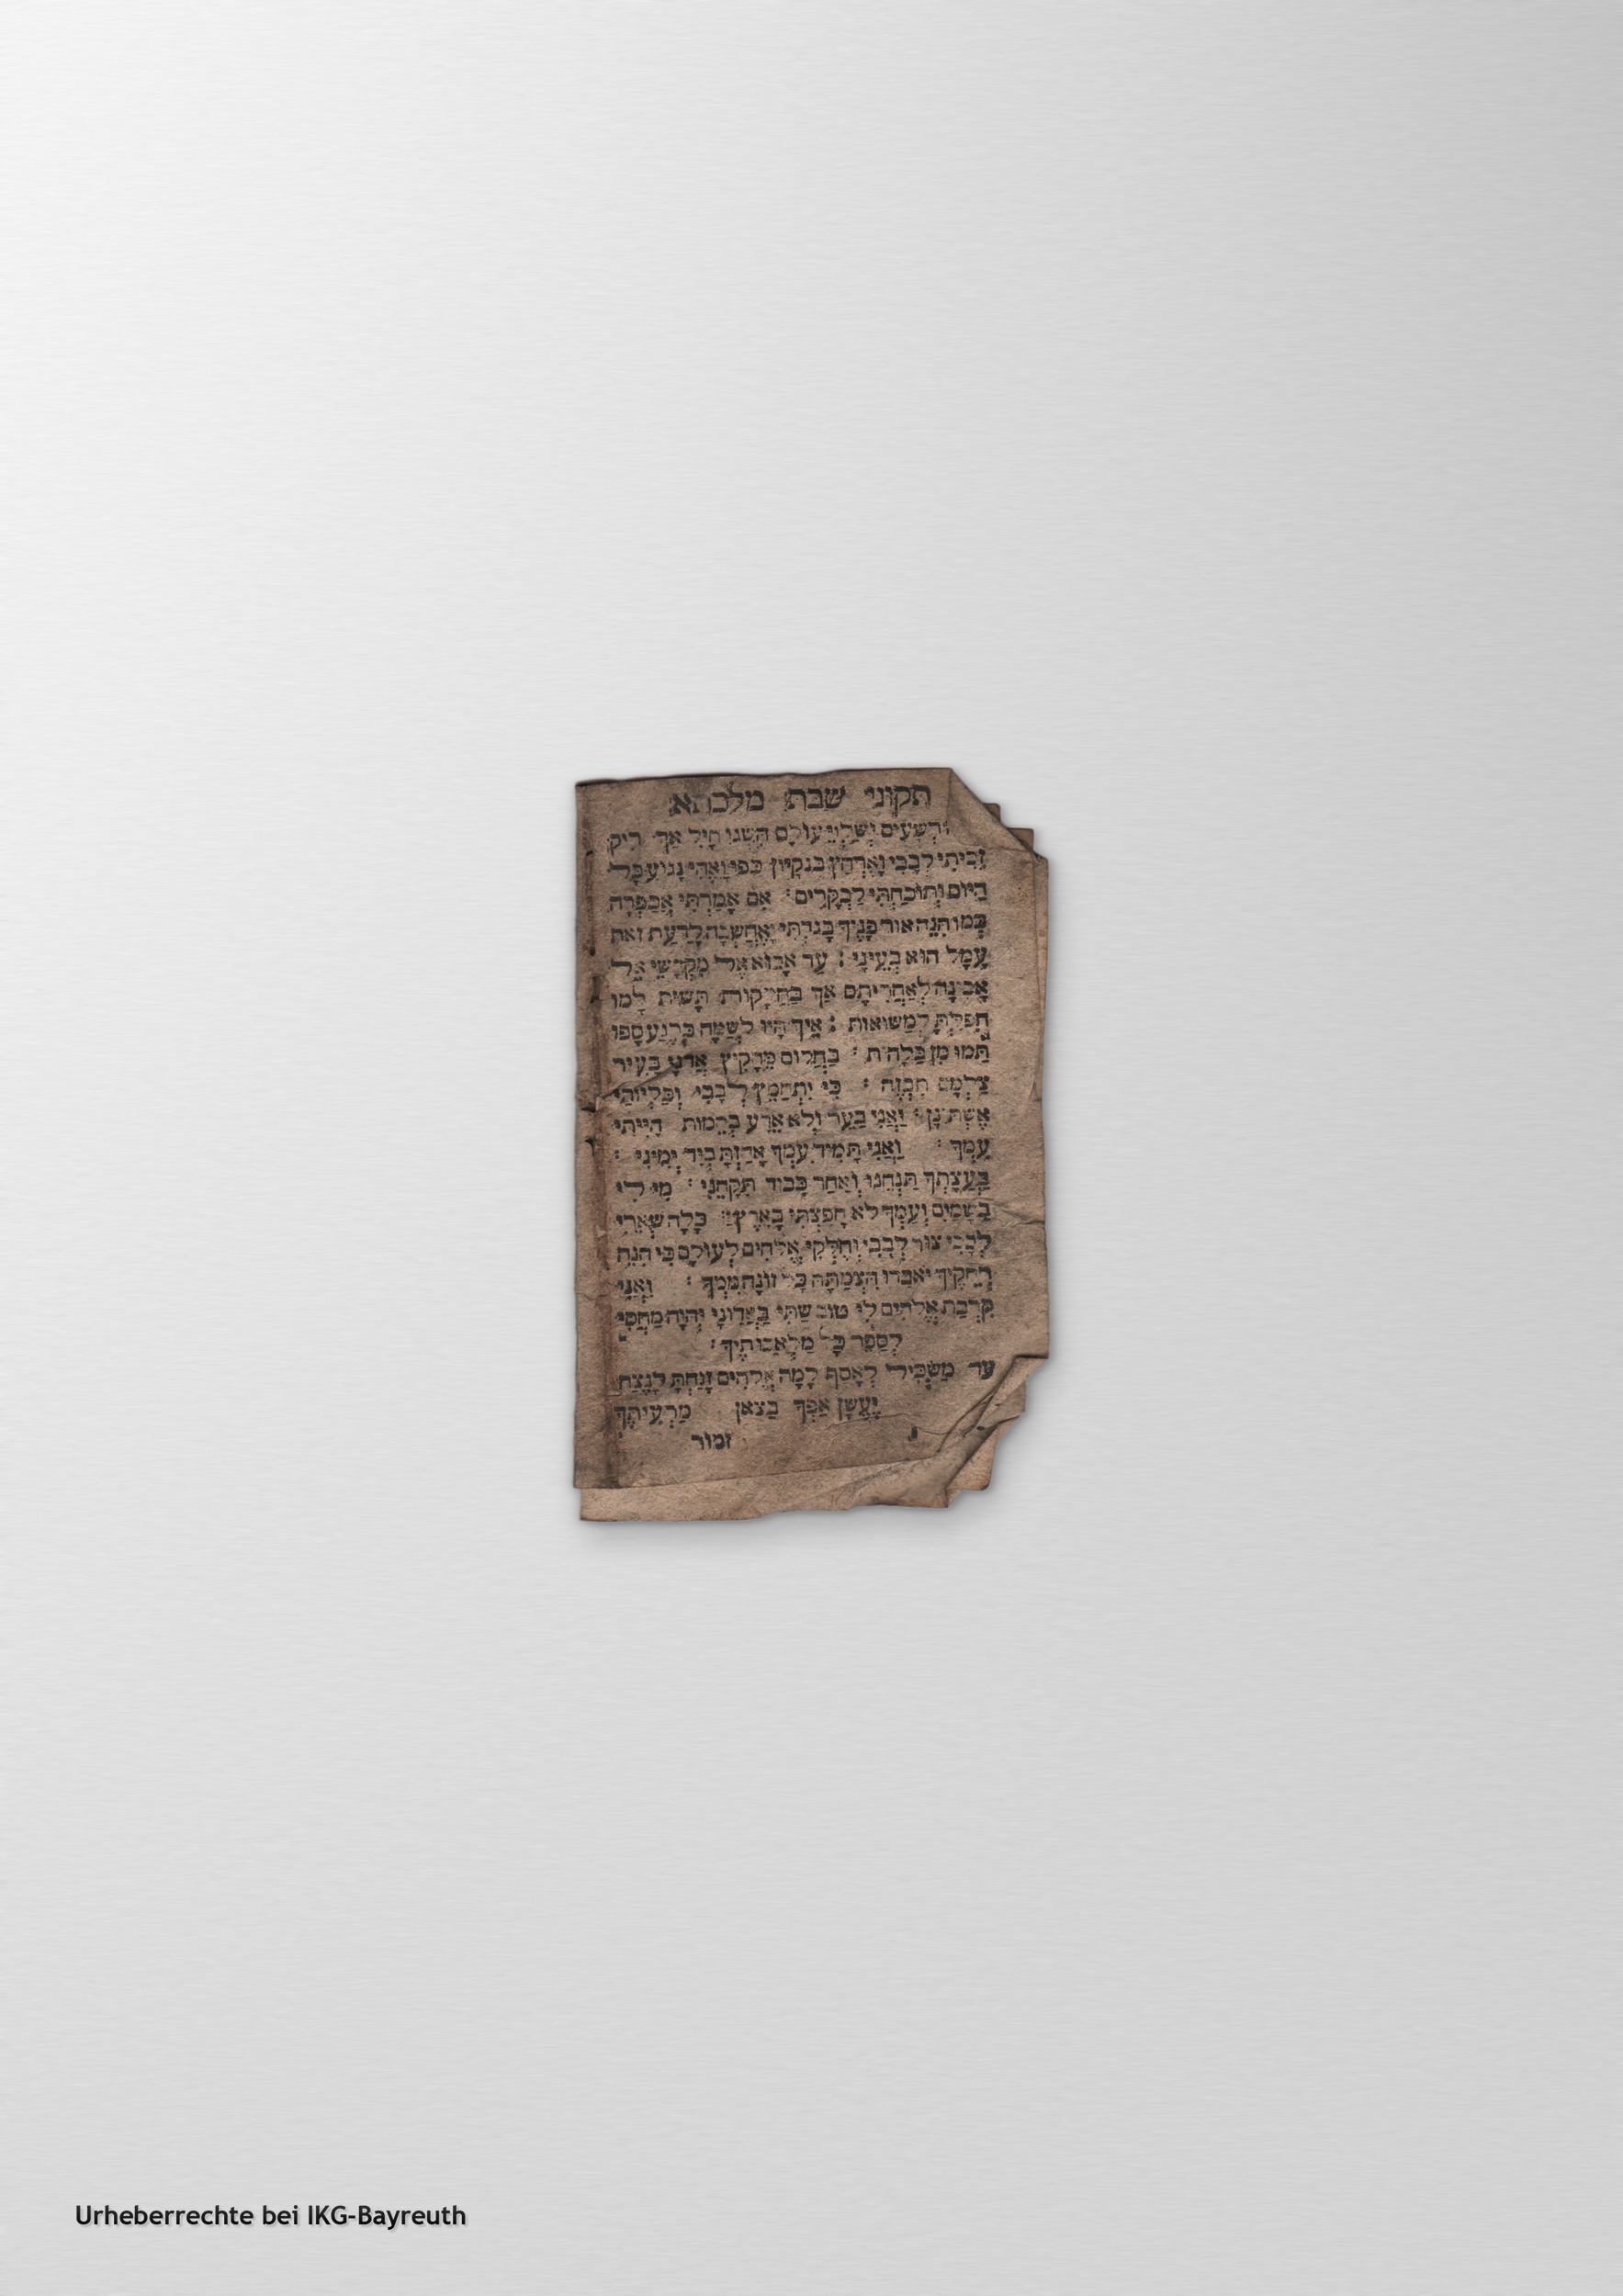 תקוני שבת מלכתא
רְשָׁעִים וְשַׁלְוֵי עוֹלָם הִשְׂגּוּ חָיִל אַךְ רִיק
זִכִּיתִי לְבָבִי וָאֶרְחַץ בְּנִקָּיוֹן כַּפָּי וָאֱהִי נָגוּעַ כָּל
הַיּוֹם וְתוֹכַחְתִּי לַבְּקָרִים : אִם אָמַרְתִּי אֲסַפְּרָה
כְּמוֹ הִנֵּה אוּר פָּנֶיךָ בָגָדְתִּי וָאֲחַשְּׁבָה לָדַעַת זֹאת
עָמָל הוּא בְעֵינָי : עַד אָבוֹא אֶל מִקְדְּשֵׁי אֵל
אָבִינָה לְאַחֲרִיתָם אַךְ בַּחֲלָקוֹת תָּשִׁית לָמוֹ
הִפַּלְתָּם לְמַשּׁוּאוֹת : אֵיךְ הָיוּ לְשַׁמָּה כְרָגַע סָפוּ
תַמּוּ מִן בַּלָּהוֹת : כַּחֲלוֹם מֵהָקִיץ אֲדֹנָי בָּעִיר
צַלְמָם תִּבְזֶה : כִּי יִתְחַמֵּץ לְבָבִי וְכִלְיוֹתַי
אֶשְׁתּוֹנָן : וַאֲנִי בַעַר וְלֹא אֵדָע בְּהֵמוֹת הָיִיתִי
עִמָּךְ : וַאֲנִי תָּמִיד עִמָּךְ אָחַזְתָּ בְּיַד יְמִינִי :
בַּעֲצָתְךָ תַנְחֵנִי וְאַחַר כָּבוֹד תִּקָּחֵנִי : מִי לִי
בַשָּׁמָיִם וְעִמְּךָ לֹא חָפַצְתִּי בָאָרֶץ : כָּלָה שְׁאֵרִי
לְבָבִי צוּר לְבָבִי וְחֶלְקִי אֱלֹהִים לְעוֹלָם כִּי הִנֵּה
רְחֵקֶיךָ יֹאבֵדוּ הִצְמַתָּה כָּל זוֹנֶה מִמֶּךָּ : וַאֲנִי
קִרְבַת אֱלֹהִים לִי טוֹב שַׁתִּי בַּאדֹנָי יְהוִה מַחְסִי
לְסַפֵּר כָּל מַלְאֲכוֹתֶיךָ :
עד מַשְׂכִּיל לְאָסָף לָמָה אֱלֹהִים זָנַחְתָּ לָנֶצַח
יֶעְשַׁן אַפְּךָ בְּצֹאן מַרְעִיתֶךָ
זמור
Urheberrechte bei IKG-Bayreuth